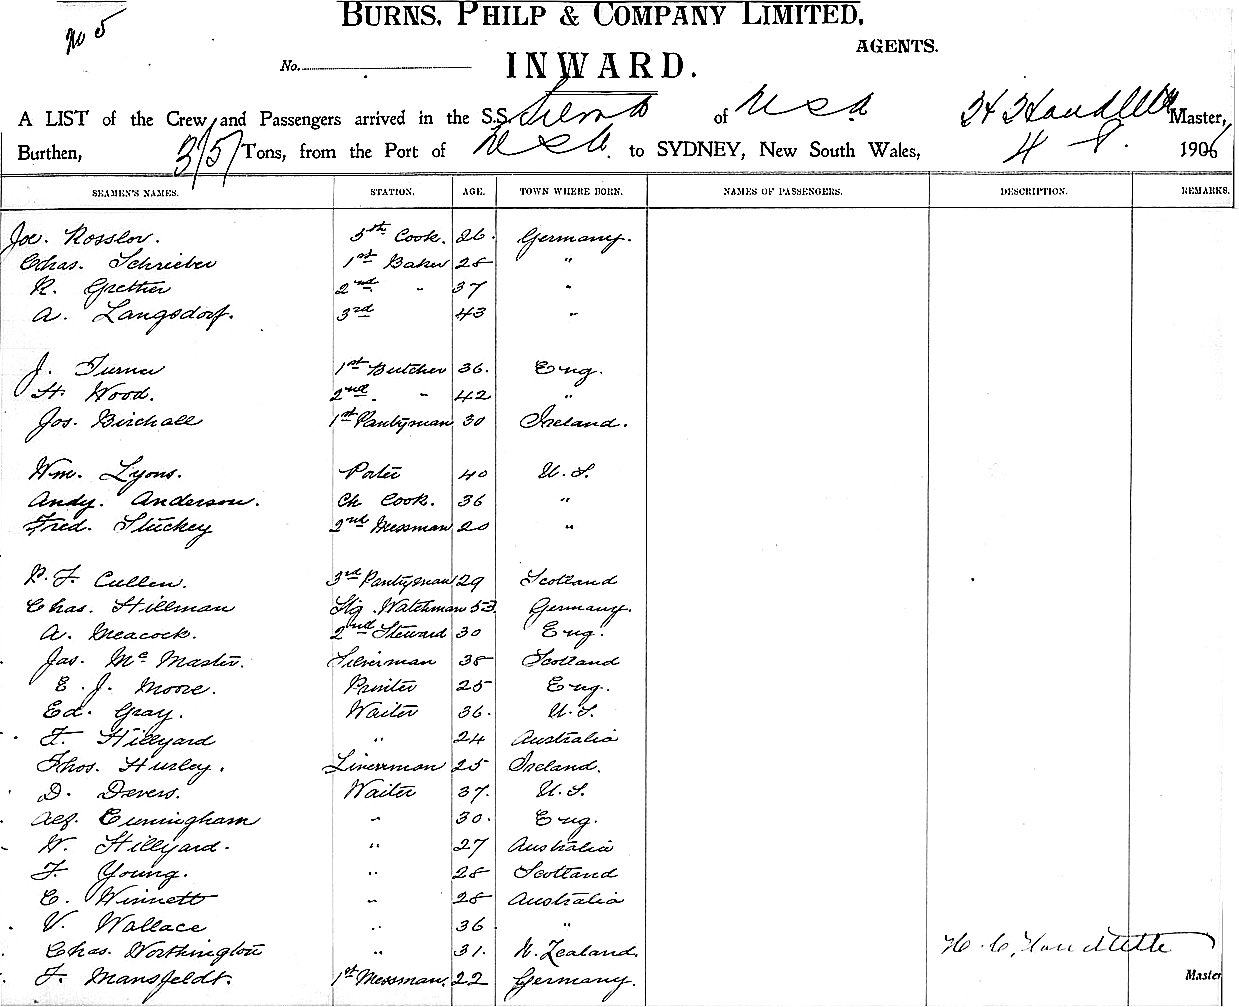 No 5
BURNS, PHILP & COMPANY LIMITED,
AGENTS.
No.
INWARD.
A LIST of the Crew and Passengers arrived in the S.S. Sierra of U S A Master,
Burthen, 3151 Tons, from the Port of U S A. to SYDNEY, New South Wales, 4 8. 1906
SEAMEN'S NAMES. STATION. AGE. TOWN WHERE BORN. NAMES OF PASSENGERS. DESCRIPTION. REMARKS.
Joe. Rosslov. 5th Cook. 26. Germany.
Chas. Schrieber 1st Baker 28 "
R. Grether 2nd " 37 "
A. Langsdorf. 3rd 43 "
J. Turner 1st Butcher 36. Eng.
H. Wood. 2nd. " 42 "
Jos. Birchall 1st Pantryman 30 Ireland.
Wm. Lyons. Porter 40 U. S.
Andy. Anderson. Ch Cook. 36 "
Fred. Stuckey 2nd Messman 20 "
P. F. Cullen. 3rd Pantryman 29 Scotland
Chas. Hillman Stg. Watchman 53. Germany.
A. Meacock. 2nd Steward 30 Eng.
Jas. Mc Master. Silverman 38 Scotland
E. J. Moore. Printer 25 Eng.
Ed. Gray. Waiter 36. U. S.
F. Hillyard " 24 Australia
Thos. Hurley. Linenman 25 Ireland.
D. Devers. Waiter 37. U. S.
Alf. Cunningham " 30. Eng.
W. Hillyard. " 27 Australia
F. Young. " 28 Scotland
C. Winnett " 28 Australia
V. Wallace " 36 "
Chas. Worthington " 31. N. Zealand.
F. Mansfeldt. 1st Messman. 22 Germany.
Master